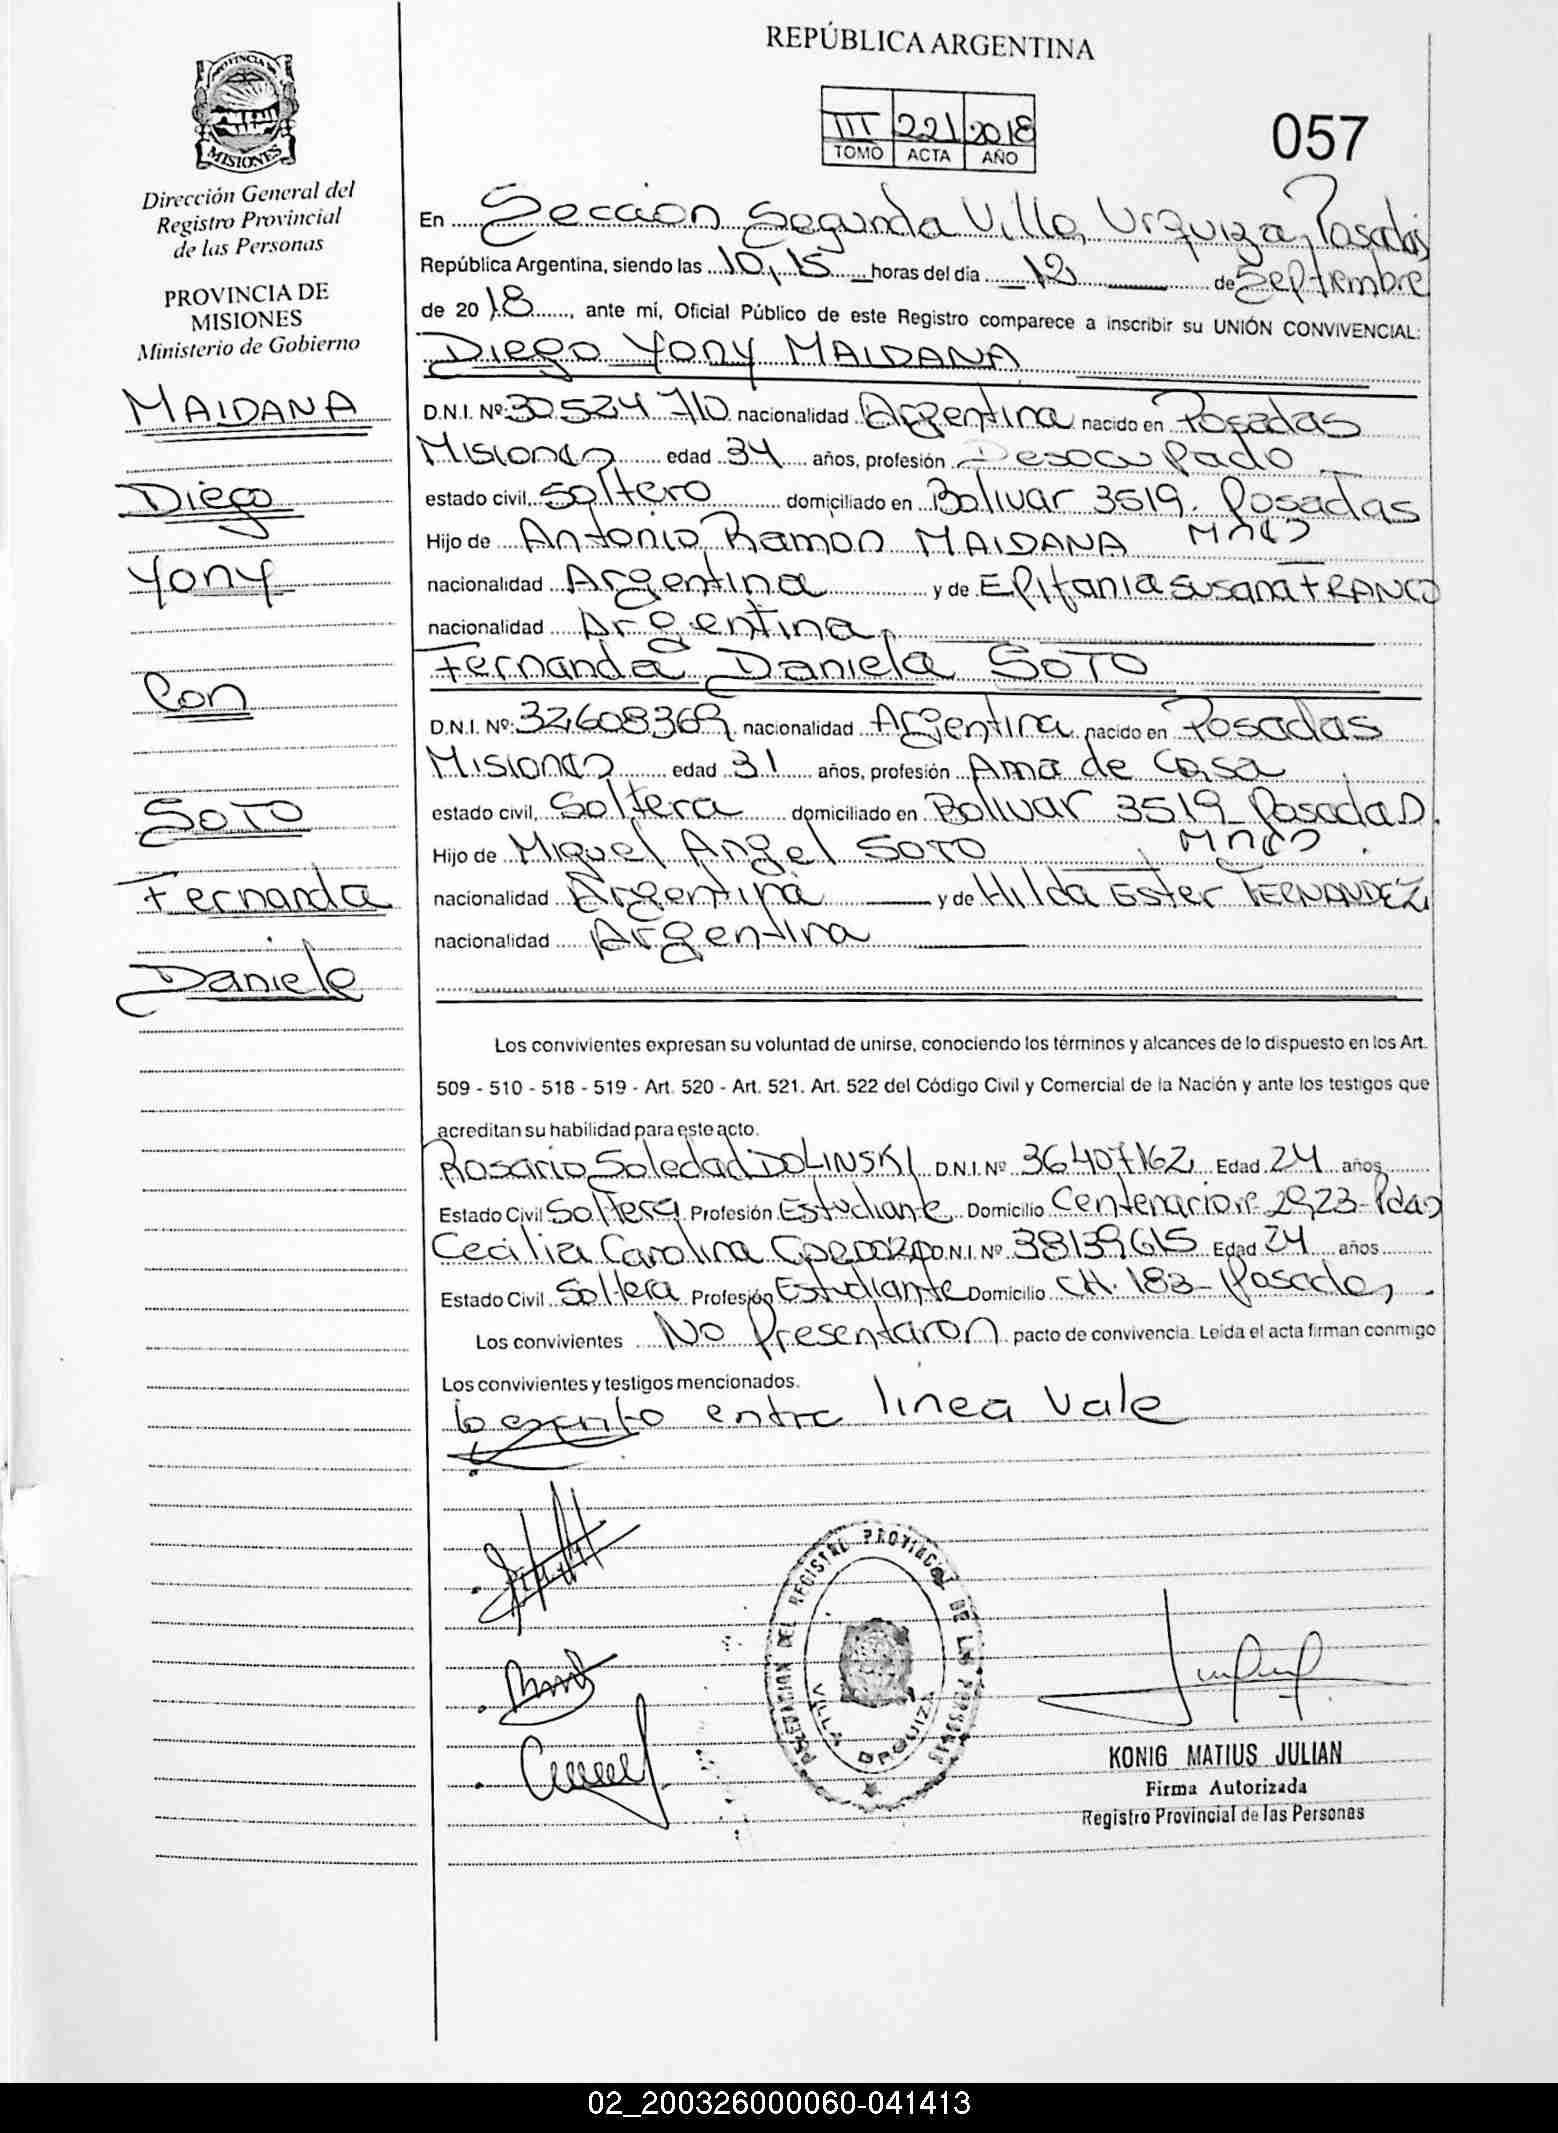 PROVINCIA DE
MISIONES
Dirección General del
Registro Provincial
de las Personas
PROVINCIA DE
MISIONES
Ministerio de Gobierno
MAIDANA
Diego
Yony
Con
SOTO
Fernanda
Daniela
REPÚBLICA ARGENTINA
III 221 2018
TOMO ACTA AÑO
057
En Seccion Segunda Villa Urquiza, Posadas
República Argentina, siendo las 10,15 horas del día 12 de Septiembre
de 2018, ante mí, Oficial Público de este Registro comparece a inscribir su UNIÓN CONVIVENCIAL:
Diego Yony MAIDANA
D.N.I. Nº: 30524710 nacionalidad Argentina nacido en Posadas
Misiones edad 34 años, profesión Desocupado
estado civil, Soltero domiciliado en Bolivar 3519. Posadas
Hijo de Antonio Ramon MAIDANA Mnes
nacionalidad Argentina y de Epifania Susana FRANCO
nacionalidad Argentina,
Fernanda Daniela SOTO
D.N.I. Nº: 32608369 nacionalidad Argentina nacido en Posadas
Misiones edad 31 años, profesión Ama de Casa
estado civil, Soltera domiciliado en Bolivar 3519 Posadas.
Hijo de Miguel Angel SOTO Mnes.
nacionalidad Argentina y de Hilda Ester FERNANDEZ,
nacionalidad Argentina
Los convivientes expresan su voluntad de unirse, conociendo los términos y alcances de lo dispuesto en los Art.
509 - 510 - 518 - 519 - Art. 520 - Art. 521. Art. 522 del Código Civil y Comercial de la Nación y ante los testigos que
acreditan su habilidad para este acto.
Rosario Soledad DOLINSKI D.N.I. Nº 36407162 Edad 24 años
Estado Civil Soltera Profesión Estudiante Domicilio Centenario nº 2923-Pdas
Cecilia Carolina D.N.I. Nº 38139615 Edad 24 años
Estado Civil Soltera Profesión Estudiante Domicilio CH. 183- Posadas,
Los convivientes No Presentaron pacto de convivencia. Leida el acta firman conmigo
Los convivientes y testigos mencionados.
lo escrito entre linea Vale
DEL REGISTRO PROVINCIAL DE LAS PERSONAS
VILLA URQUIZA
KONIG MATIUS JULIAN
Firma Autorizada
Registro Provincial de las Personas
02_200326000060-041413